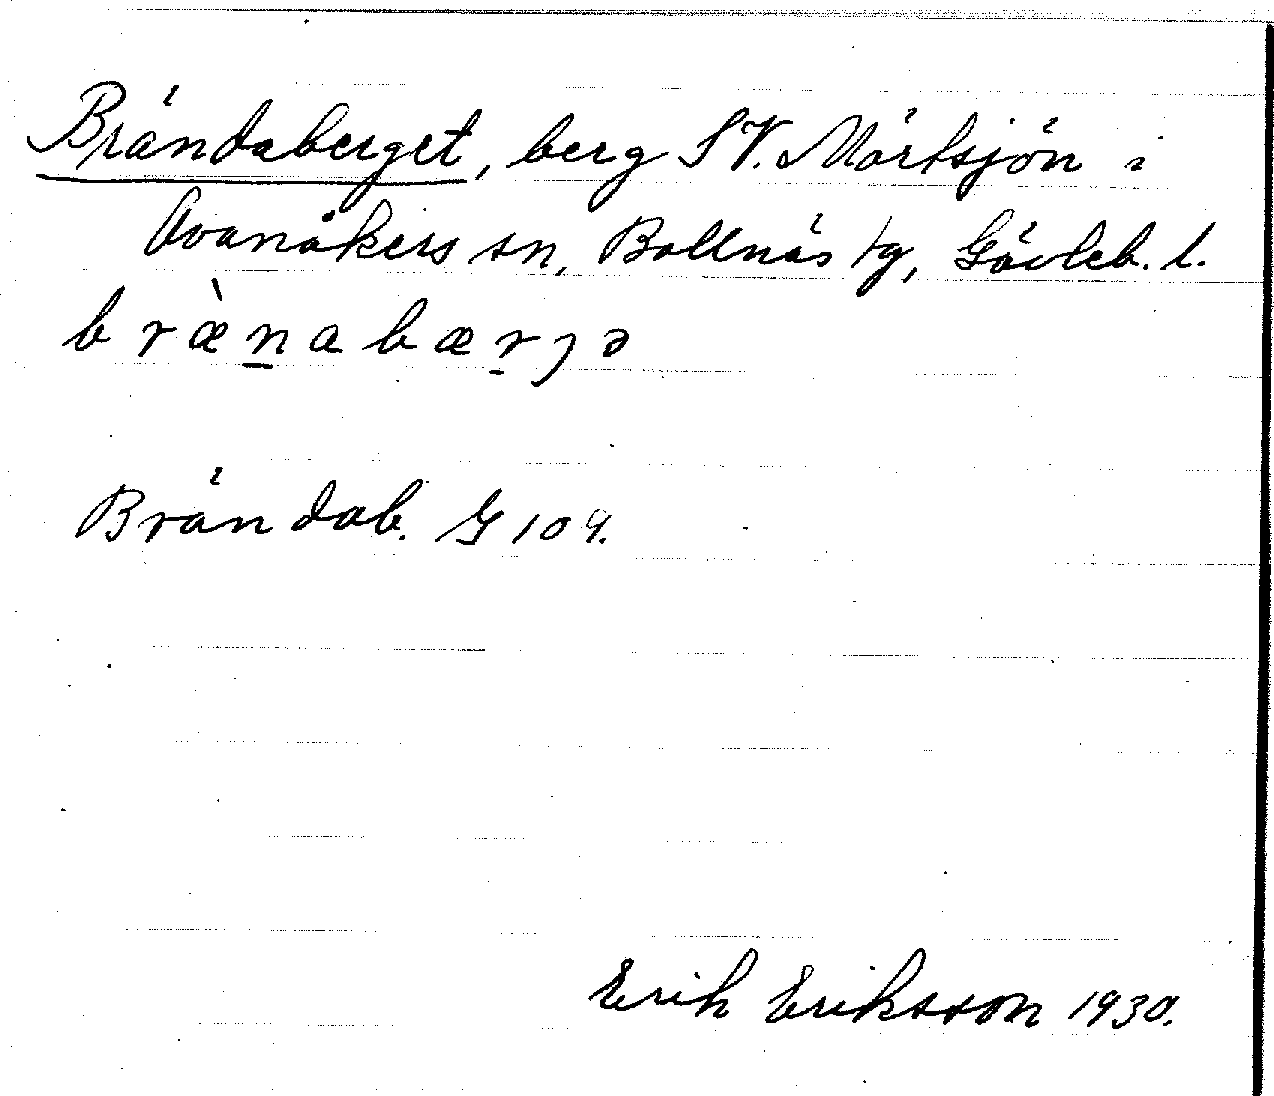 Brändaberget, berg SV. Mörtsjön i
Ovanåkers sn, Bollnäs tg, Gävleb. l.
bræ̀n̠abær̠ȷə
Brändab. G 109.
Erik Eriksson 1930.